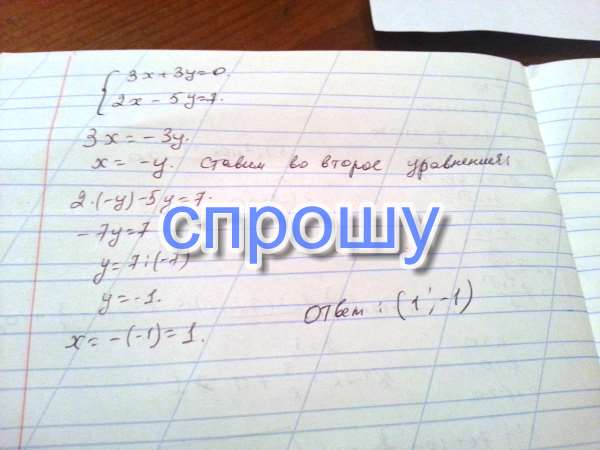 3x+3y=0.
2x-5y=7.
3x=-3y.
x=-y. ставим во второе уравнение:
2·(-y)-5y=7.
-7y=7
спрошу
y=7:(-7)
y=-1.
Ответ: (1;-1)
x=-(-1)=1.